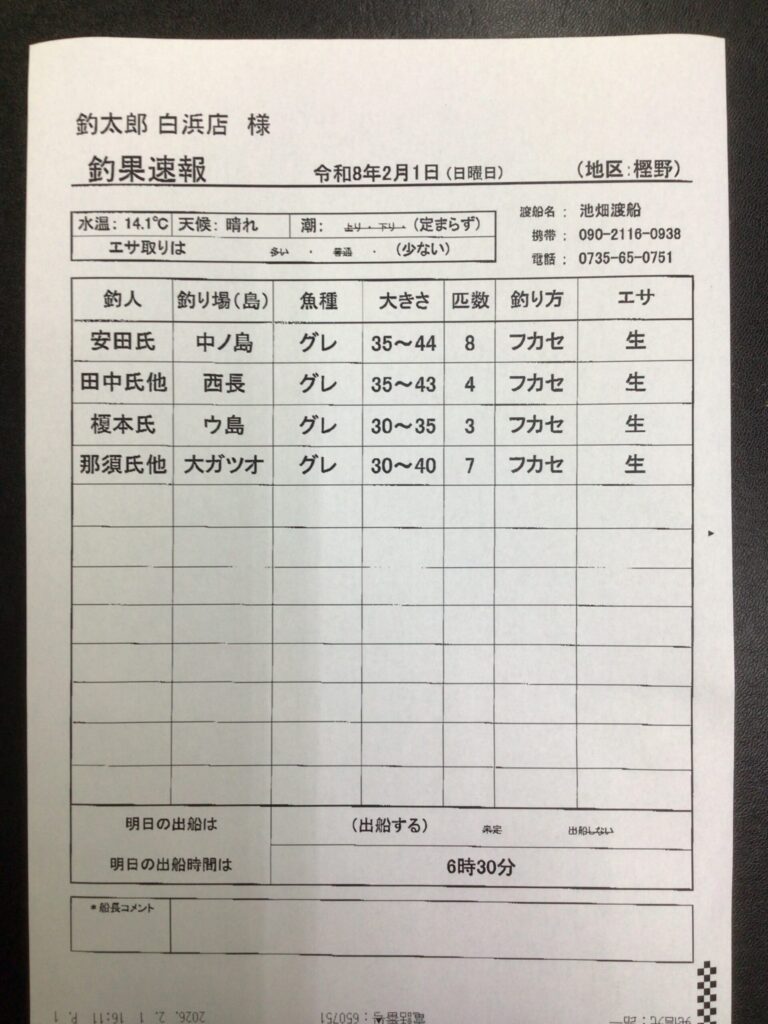 釣太郎 白浜店 様
釣果速報 令和8年2月1日(日曜日) (地区:樫野)
水温: 14.1℃ 天候: 晴れ 潮: 上り・下り・(定まらず)
エサ取りは 多い ・ 普通 ・ (少ない)
渡船名: 池畑渡船
携帯: 090-2116-0938
電話: 0735-65-0751
釣人 釣り場(島) 魚種 大きさ 匹数 釣り方 エサ
安田氏 中ノ島 グレ 35～44 8 フカセ 生
田中氏他 西長 グレ 35～43 4 フカセ 生
榎本氏 ウ島 グレ 30～35 3 フカセ 生
那須氏他 大ガツオ グレ 30～40 7 フカセ 生
明日の出船は (出船する) 未定 出船しない
明日の出船時間は 6時30分
*船長コメント
電話番号:650751 2026. 2. 1 16:11 P. 1